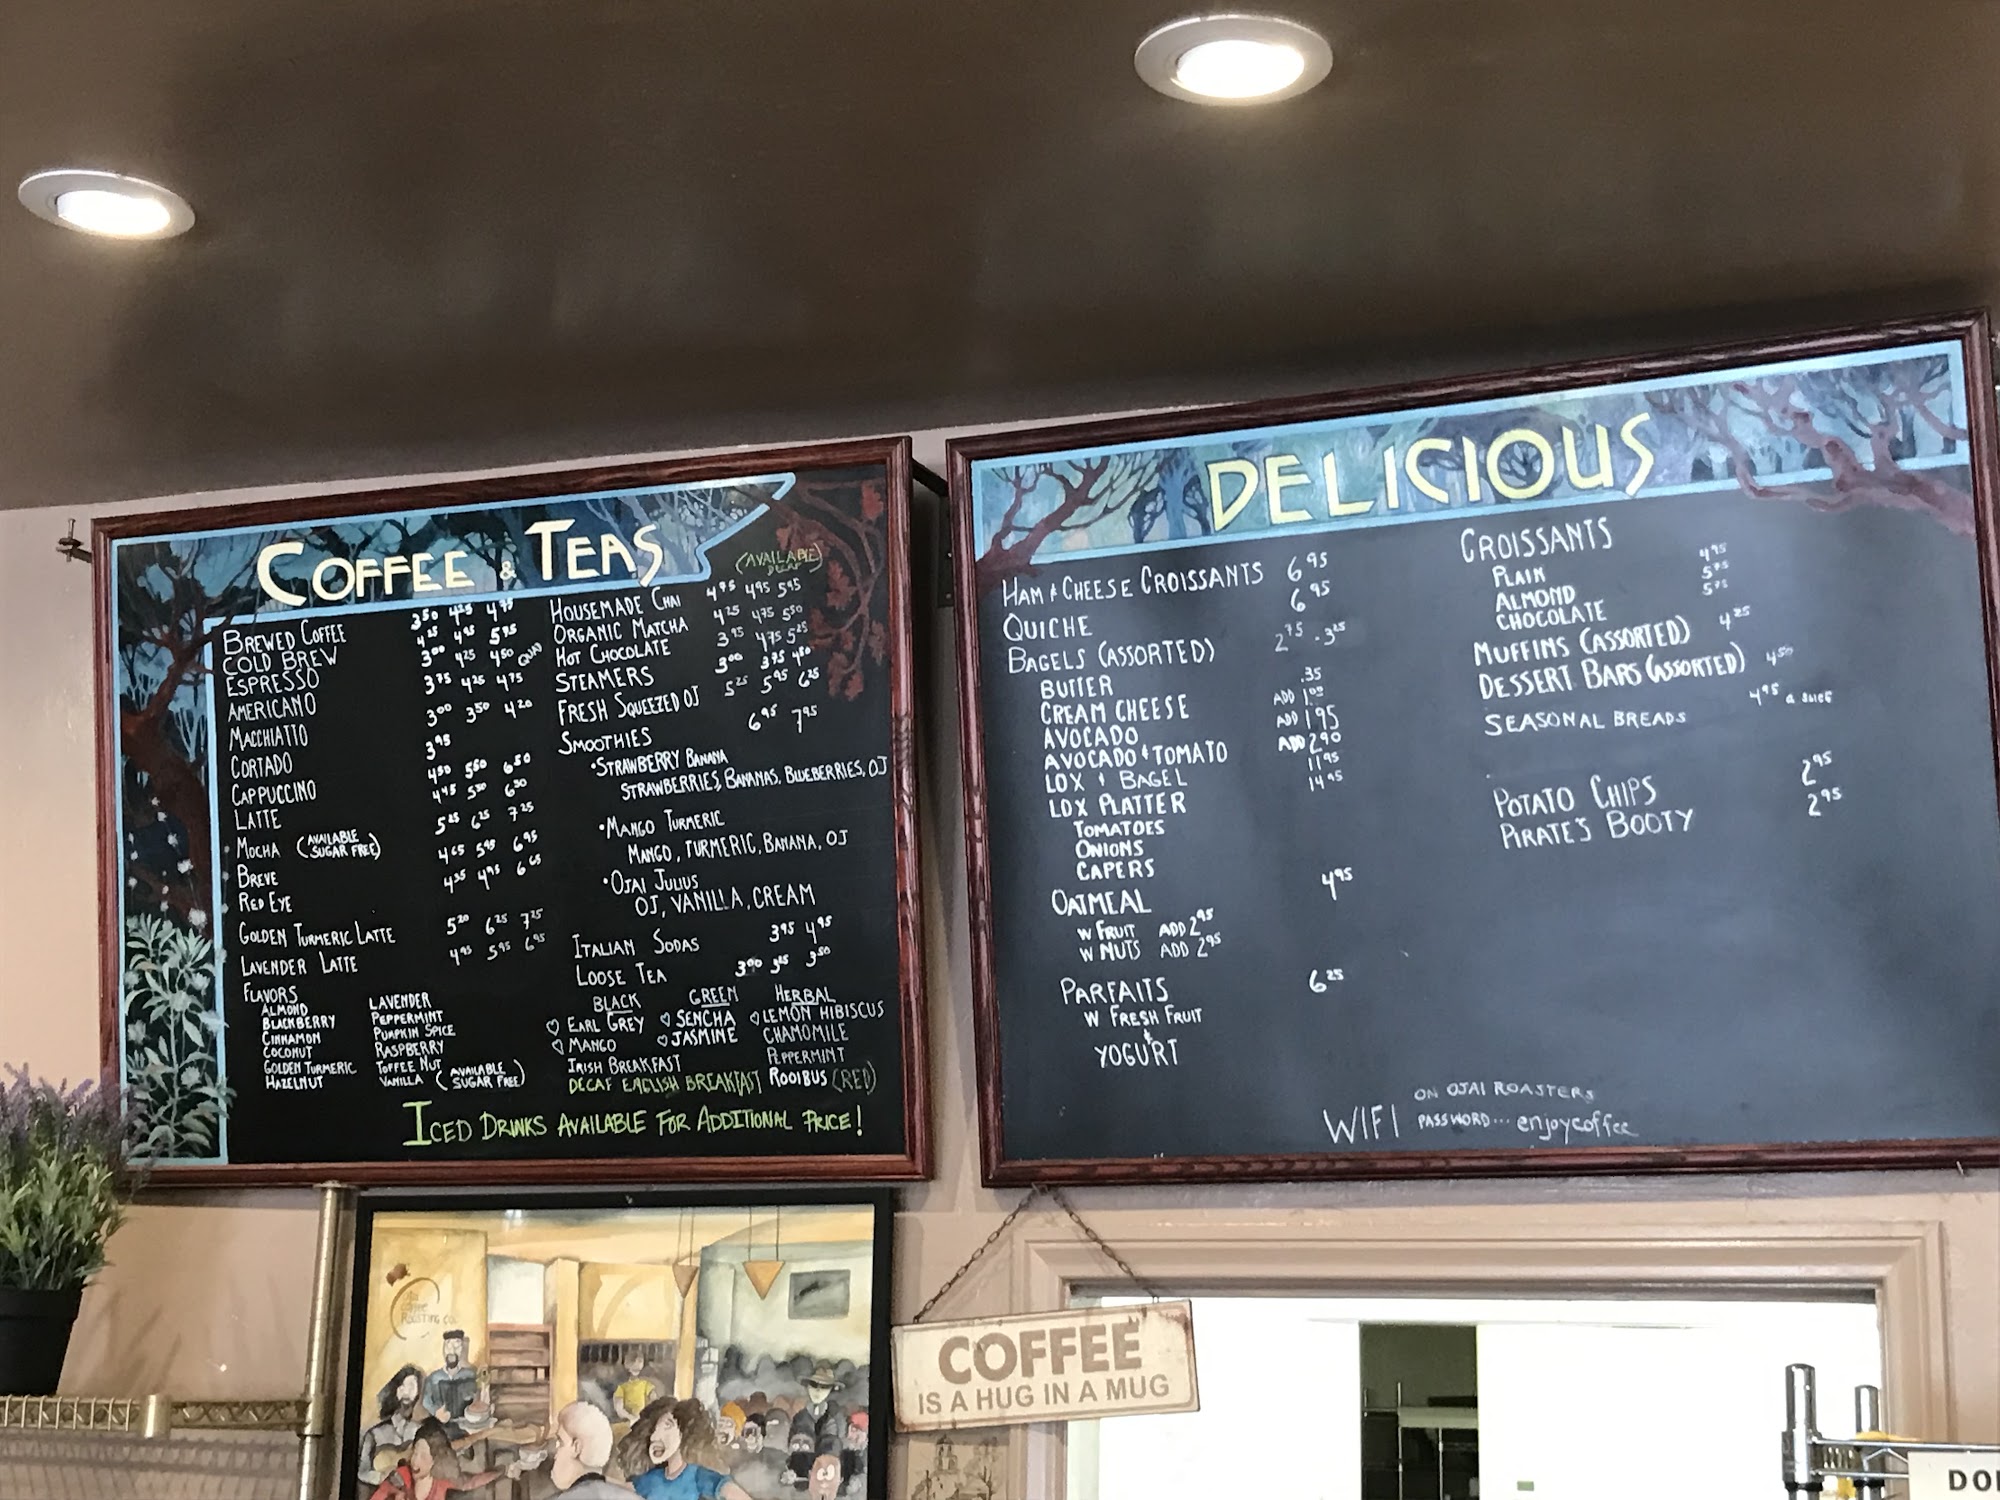 COFFEE & TEAS
(AVAILABLE DECAF)
BREWED COFFEE 3.50 4.25 4.75
COLD BREW 4.25 4.95 5.75
ESPRESSO 3.00 4.25 4.50 QUAD
AMERICANO 3.75 4.25 4.75
MACCHIATTO 3.00 3.50 4.20
CORTADO 3.95
CAPPUCCINO 4.50 5.50 6.50
LATTE 4.45 5.50 6.50
MOCHA (AVAILABLE SUGAR FREE) 5.25 6.25 7.25
BREVE 4.65 5.95 6.95
RED EYE 4.35 4.95 6.65
GOLDEN TURMERIC LATTE 5.20 6.25 7.25
LAVENDER LATTE 4.95 5.95 6.95
FLAVORS
ALMOND
BLACKBERRY
CINNAMON
COCONUT
GOLDEN TURMERIC
HAZELNUT
LAVENDER
PEPPERMINT
PUMPKIN SPICE
RASPBERRY
TOFFEE NUT
VANILLA (AVAILABLE SUGAR FREE)
HOUSEMADE CHAI 4.75 4.95 5.95
ORGANIC MATCHA 4.25 4.75 5.50
HOT CHOCOLATE 3.95 4.75 5.25
STEAMERS 3.00 3.75 4.50
FRESH SQUEEZED OJ 5.25 5.95 6.25
SMOOTHIES 6.95 7.95
•STRAWBERRY BANANA
STRAWBERRIES, BANANAS, BLUEBERRIES, OJ
•MANGO TURMERIC
MANGO, TURMERIC, BANANA, OJ
•OJAI JULIUS
OJ, VANILLA, CREAM
ITALIAN SODAS 3.95 4.95
LOOSE TEA 3.00 3.25 3.50
BLACK
♡ EARL GREY
♡ MANGO
IRISH BREAKFAST
DECAF ENGLISH BREAKFAST
GREEN
♡ SENCHA
♡ JASMINE
HERBAL
♡ LEMON HIBISCUS
CHAMOMILE
PEPPERMINT
ROOIBUS (RED)
ICED DRINKS AVAILABLE FOR ADDITIONAL PRICE!
DELICIOUS
HAM & CHEESE CROISSANTS 6.95
QUICHE 6.95
BAGELS (ASSORTED) 2.75 - 3.25
BUTTER .35
CREAM CHEESE ADD 1.00
AVOCADO ADD 1.95
AVOCADO & TOMATO ADD 2.90
LOX & BAGEL 11.95
LOX PLATTER 14.95
TOMATOES
ONIONS
CAPERS
OATMEAL 4.95
W FRUIT ADD 2.95
W NUTS ADD 2.95
PARFAITS 6.25
W FRESH FRUIT
&
YOGURT
CROISSANTS
PLAIN 4.95
ALMOND 5.75
CHOCOLATE 5.75
MUFFINS (ASSORTED) 4.25
DESSERT BARS (ASSORTED) 4.50
SEASONAL BREADS 4.95 a SLICE
POTATO CHIPS 2.95
PIRATE'S BOOTY 2.95
ON OJAI ROASTERS
WIFI PASSWORD... enjoycoffee
Coffee
ROASTING CO.
COFFEE
IS A HUG IN A MUG
DO